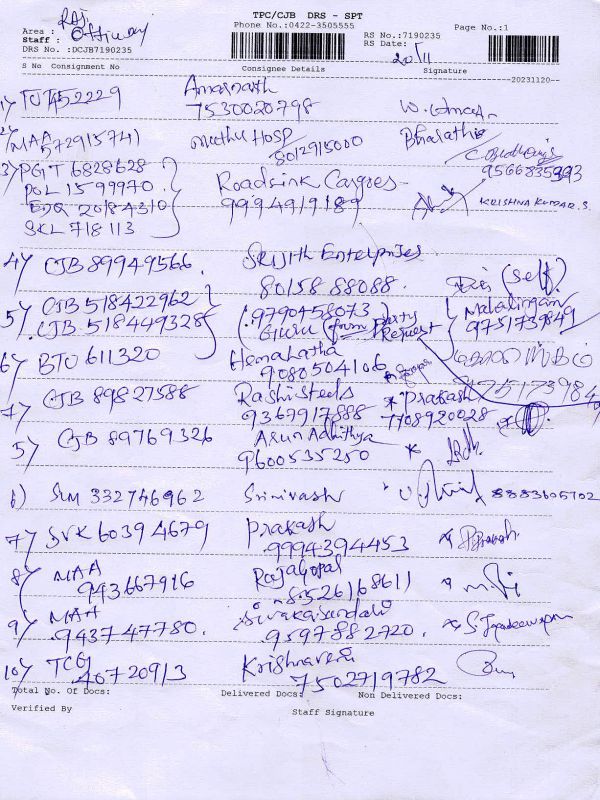 TPC/CJB DRS - SPT
Phone No.:0422-3505555
Page No.:1
Area :
Staff :
DRS No. :DCJB7190235
RS No.:7190235
RS Date: 20/11
S No Consignment No Consignee Details Signature
--20231120--
1) TUT452229 Amarnath
7530020798
2) MAA 572915741 muthu Hosp Bharathi
8012915000
3) PGT 6828628
POL 1599970 Roadlink Cargoes 9566835393
EDQ 20184310 9994919189 KRISHNA KUMAR.S.
SKL 718113
4) CJB 89949566. SRIJITH Enterprises
80158 88088. (Self)
5) CJB 518422962 (.9790458073) Mahalingam
CJB 518449328 Guru (from Party Request 9751739849
6) BTU 611320 Hemalatha
9080504106 9751739849
7) CJB 89827588 Rashi steels * Prakash
9367917888 7708920028 *
5) CJB 89769326 Arun Adhithya
9600535250 *
6) SLM 332746962 Srinivash 8883605702
7) SVK 60394679 Prakash
.9994394453
8) MAA Rajagopal
943667916 8526168611
9) MAA Sivakasundali
.943747780. .9597882720.
10) TCG Krishnaveni
40720913 7502719782
Total No. Of Docs: Delivered Docs: Non Delivered Docs:
Verified By Staff Signature